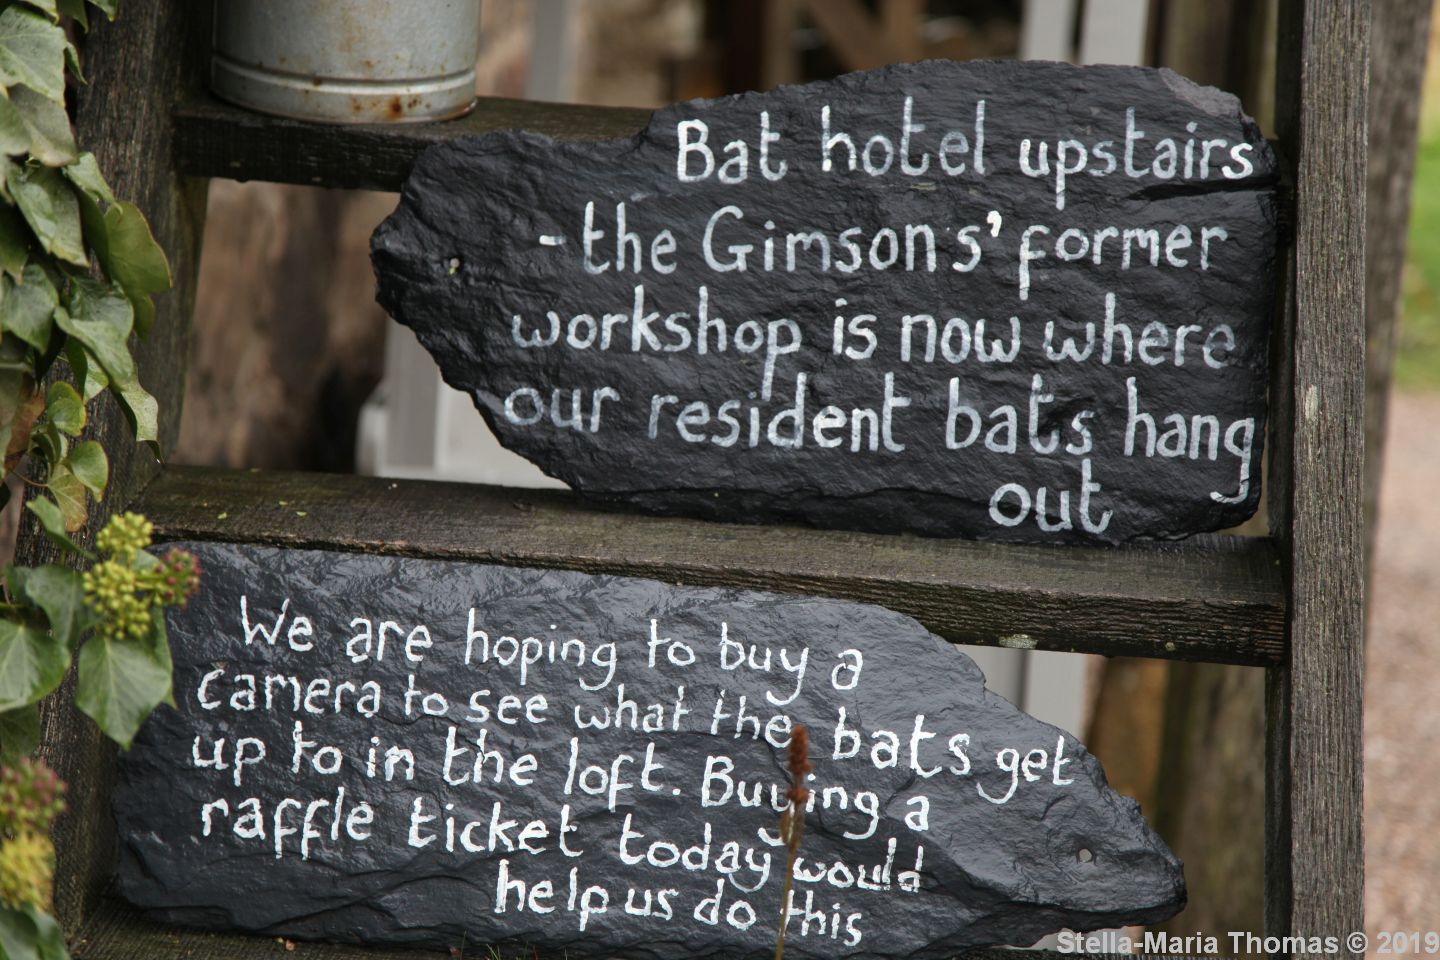 Bat hotel upstairs
- the Gimsons' former
workshop is now where
our resident bats hang
out
We are hoping to buy a
camera to see what the bats get
up to in the loft. Buying a
raffle ticket today would
help us do this
Stella-Maria Thomas © 2019